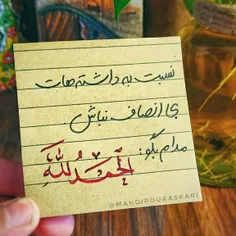 نسبت به داشته‌هات
بی انصاف نباش.
مدام بگو:
الحَمدُ لِلّٰه
@MAHDIPOURASKARI